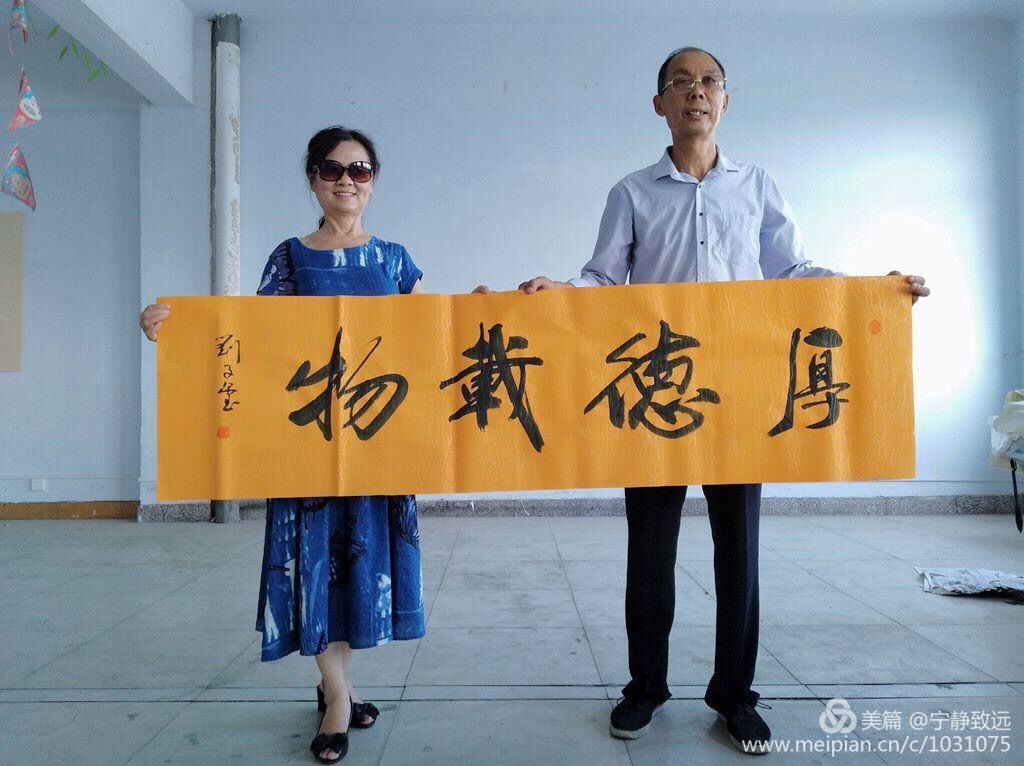 厚德載物
劉子玺
美篇 @宁静致远
www.meipian.cn/c/1031075